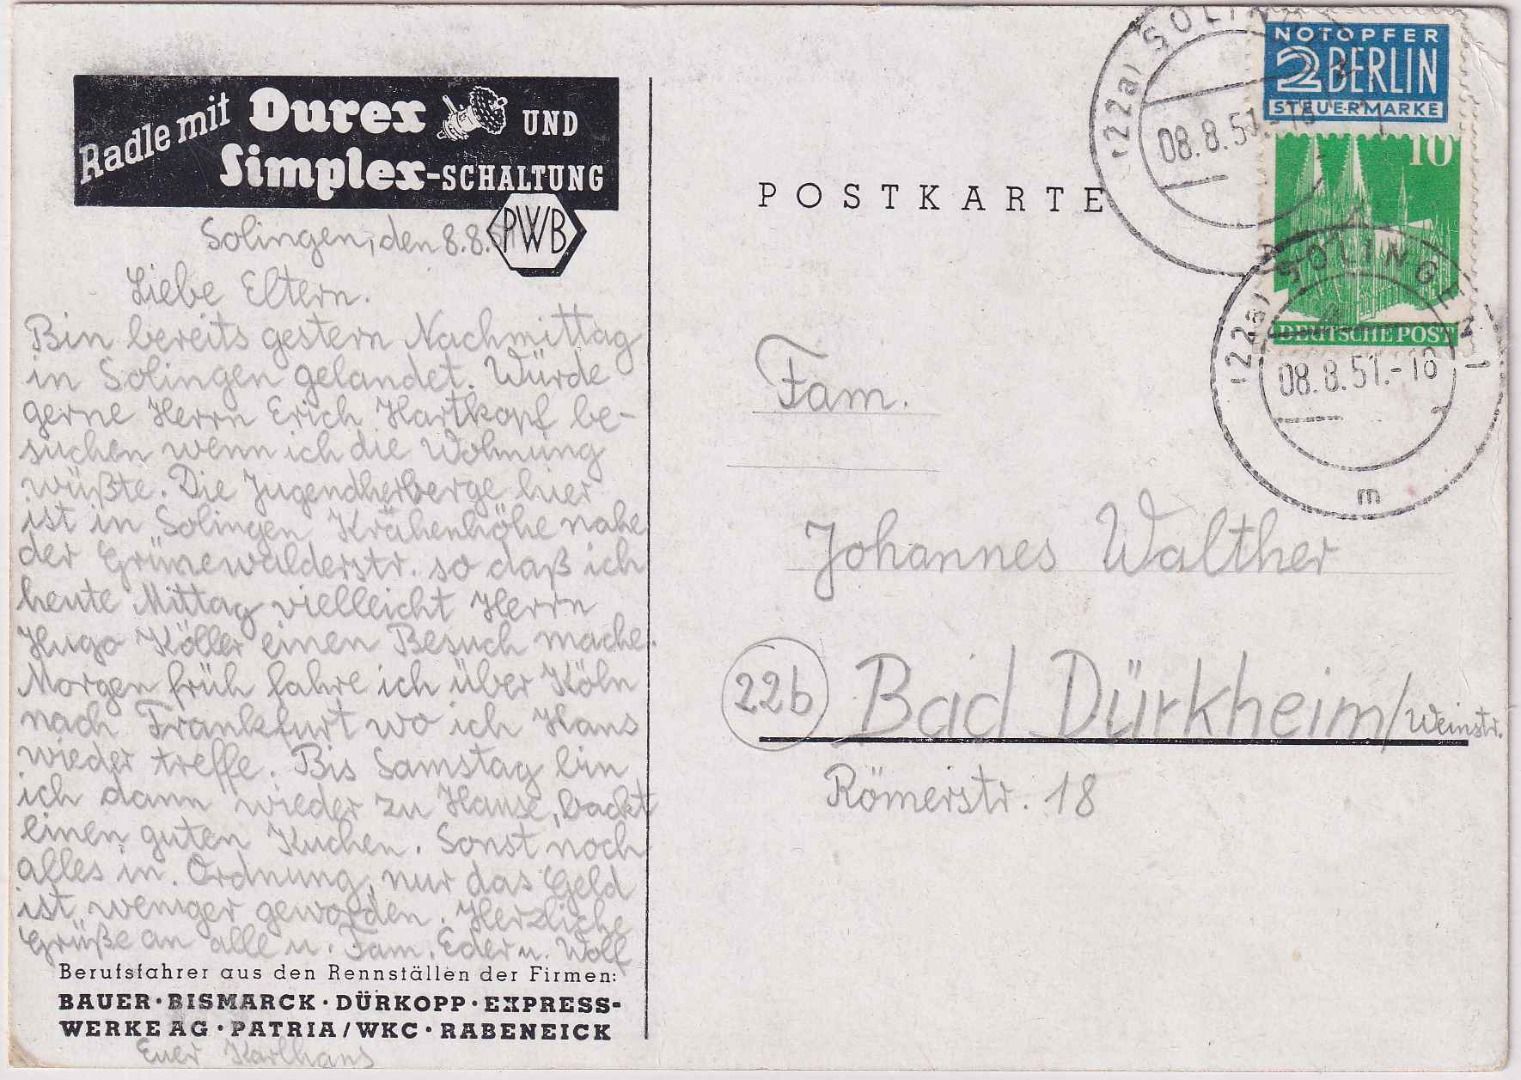 Radle mit Durex UND
Simplex-SCHALTUNG
PWB
Solingen, den 8.8.
Liebe Eltern.
Bin bereits gestern Nachmittag
in Solingen gelandet. Würde
gerne Herrn Erich Hartkopf be-
suchen wenn ich die Wohnung
wüßte. Die Jugendherberge hier
ist in Solingen Krähenhöhe nahe
der Grünewalderstr. so daß ich
heute Mittag vielleicht Herrn
Hugo Köller einen Besuch mache.
Morgen früh fahre ich über Köln
nach Frankfurt wo ich Hans
wieder treffe. Bis Samstag bin
ich dann wieder zu Hause, backt
einen guten Kuchen. Sonst noch
alles in Ordnung, nur das Geld
ist weniger geworden. Herzliche
Grüße an alle u. Fam. Eder u. Wolf
Berufsfahrer aus den Rennställen der Firmen:
BAUER · BISMARCK · DÜRKOPP · EXPRESS-
WERKE AG · PATRIA/WKC · RABENEICK
Euer Karlhans
POSTKARTE
(22a) SOLING
08.8.51.-18
NOTOPFER
2 BERLIN
STEUERMARKE
10
DEUTSCHE POST
(22a) SOLINGEN 1
08.8.51.-18
m
Fam.
Johannes Walther
22b Bad Dürkheim/Weinstr.
Römerstr. 18